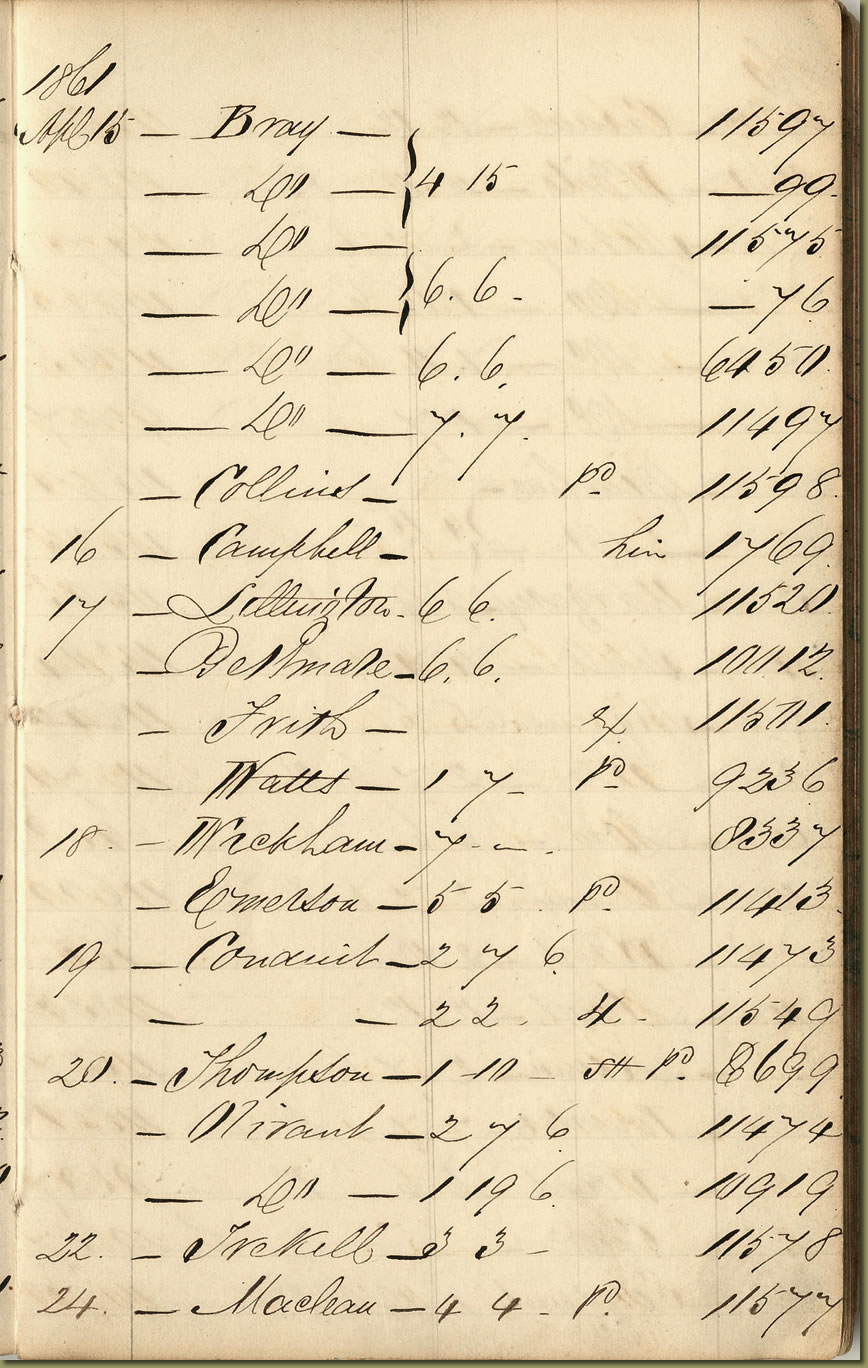 1861
Apl 15 — Bray — 11597
— Do — } 4 15 — 99.
— Do — 11575
— Do — } 6. 6 - — 76
— Do — 6. 6. 6450.
— Do — 7. 7. 11497
— Collins — Pd 11598.
16 — Campbell — 1769.
17 — Lillington - 6 6. 11520.
— 6. 6. 10012.
— Frith — 11501.
— Watts — 1 7 - Pd 9236
18. — Wickham — 7 - - . 8337
— Emerson — 5 5 . Pd. 11413.
19 — Conduit — 2 7 6. 11473
— — 2 2 . 4 - 11549
20. — Thompson — 1 10 — Pd. 8699.
— — 2 7 6. 11474
— Do — 1 19 6. 10919
22. — — 3 3 - 11578
24. — Maclean — 4 4 - P. 11577